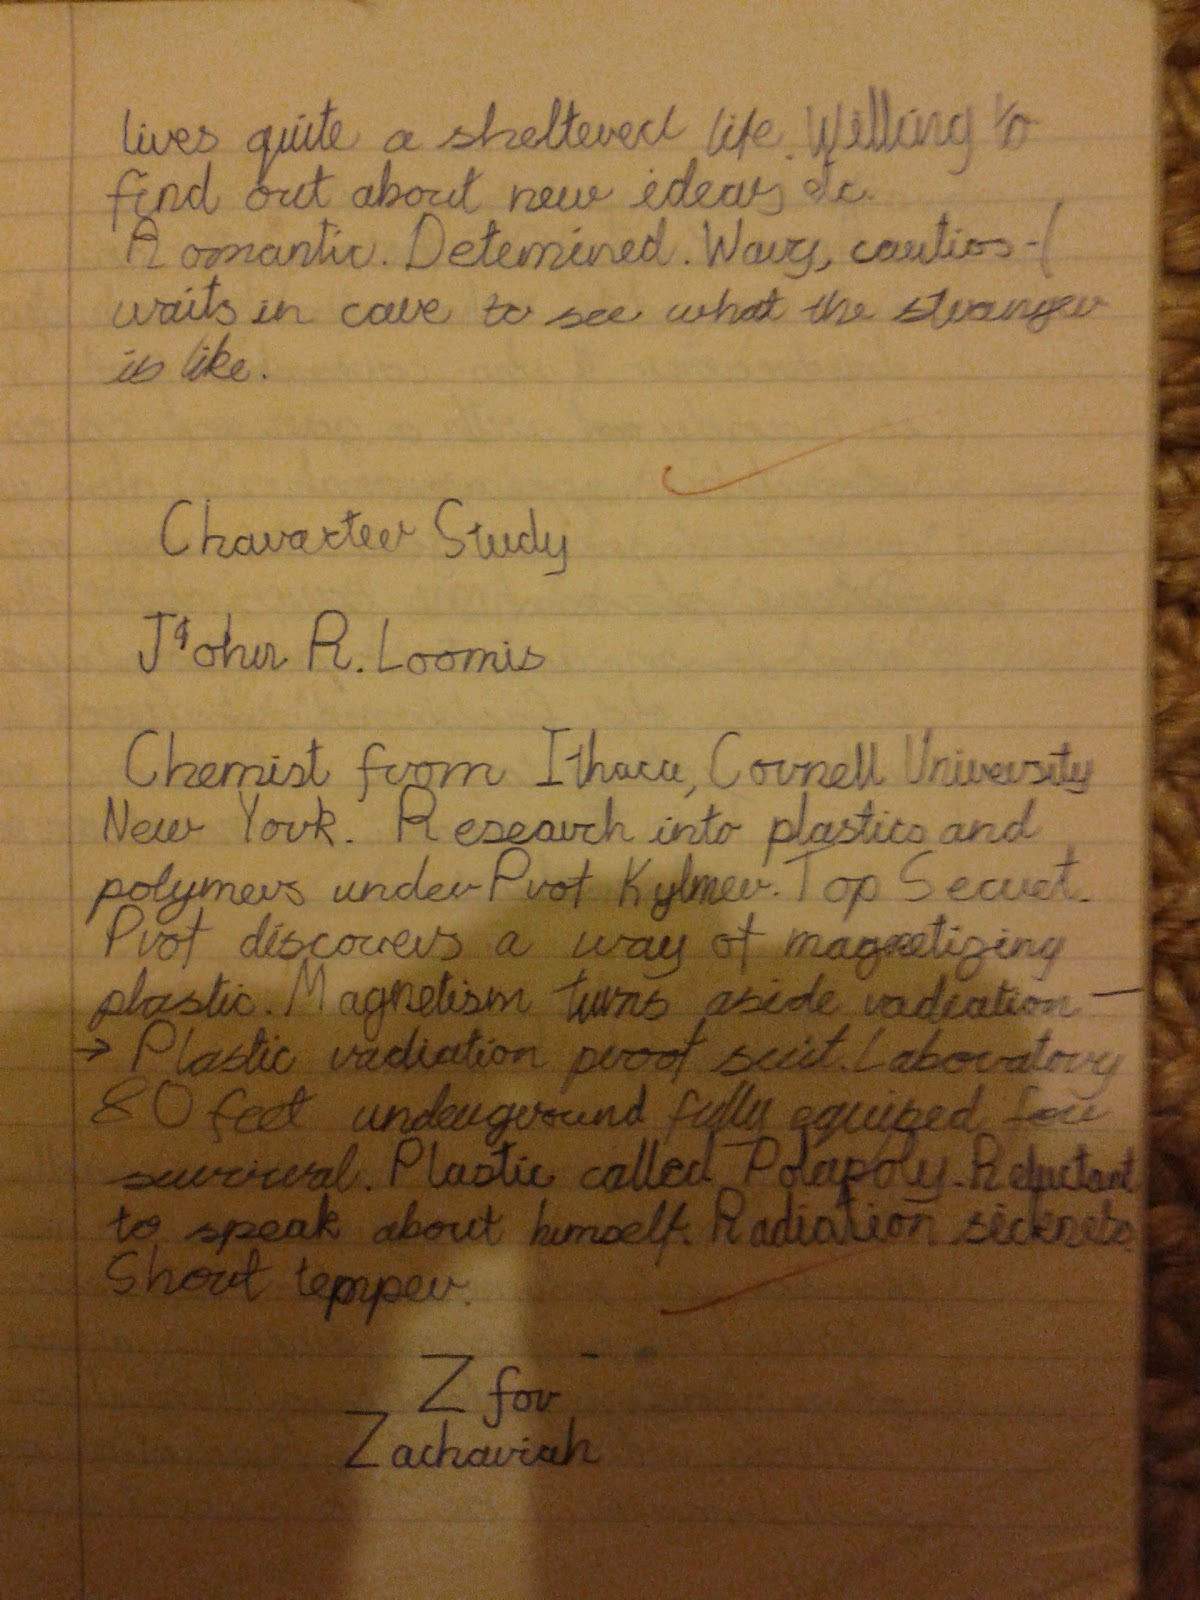 lives quite a sheltered life. Willing to
find out about new ideas, etc.
Romantic. Detemined. Wary, cautios -(
waits in cave to see what the stranger
is like.
Character Study
John R. Loomis
Chemist from Ithaca, Cornell University
New York. Research into plastics and
polymers under Prof Kylmer. Top Secret.
Prof discovers a way of magnetizing
plastic. Magnetism turns aside radiation —
→ Plastic radiation proof suit. Laboratory
80 feet underground fully equiped for
survival. Plastic called Polapoly. Reluctant
to speak about himself. Radiation sickness.
Short temper.
Z for
Zachariah